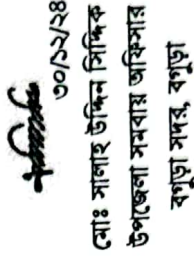 ৩০/১২/২৪
মোঃ সালাহ উদ্দিন সিদ্দিক
উপজেলা সমবায় অফিসার
বগুড়া সদর, বগুড়া